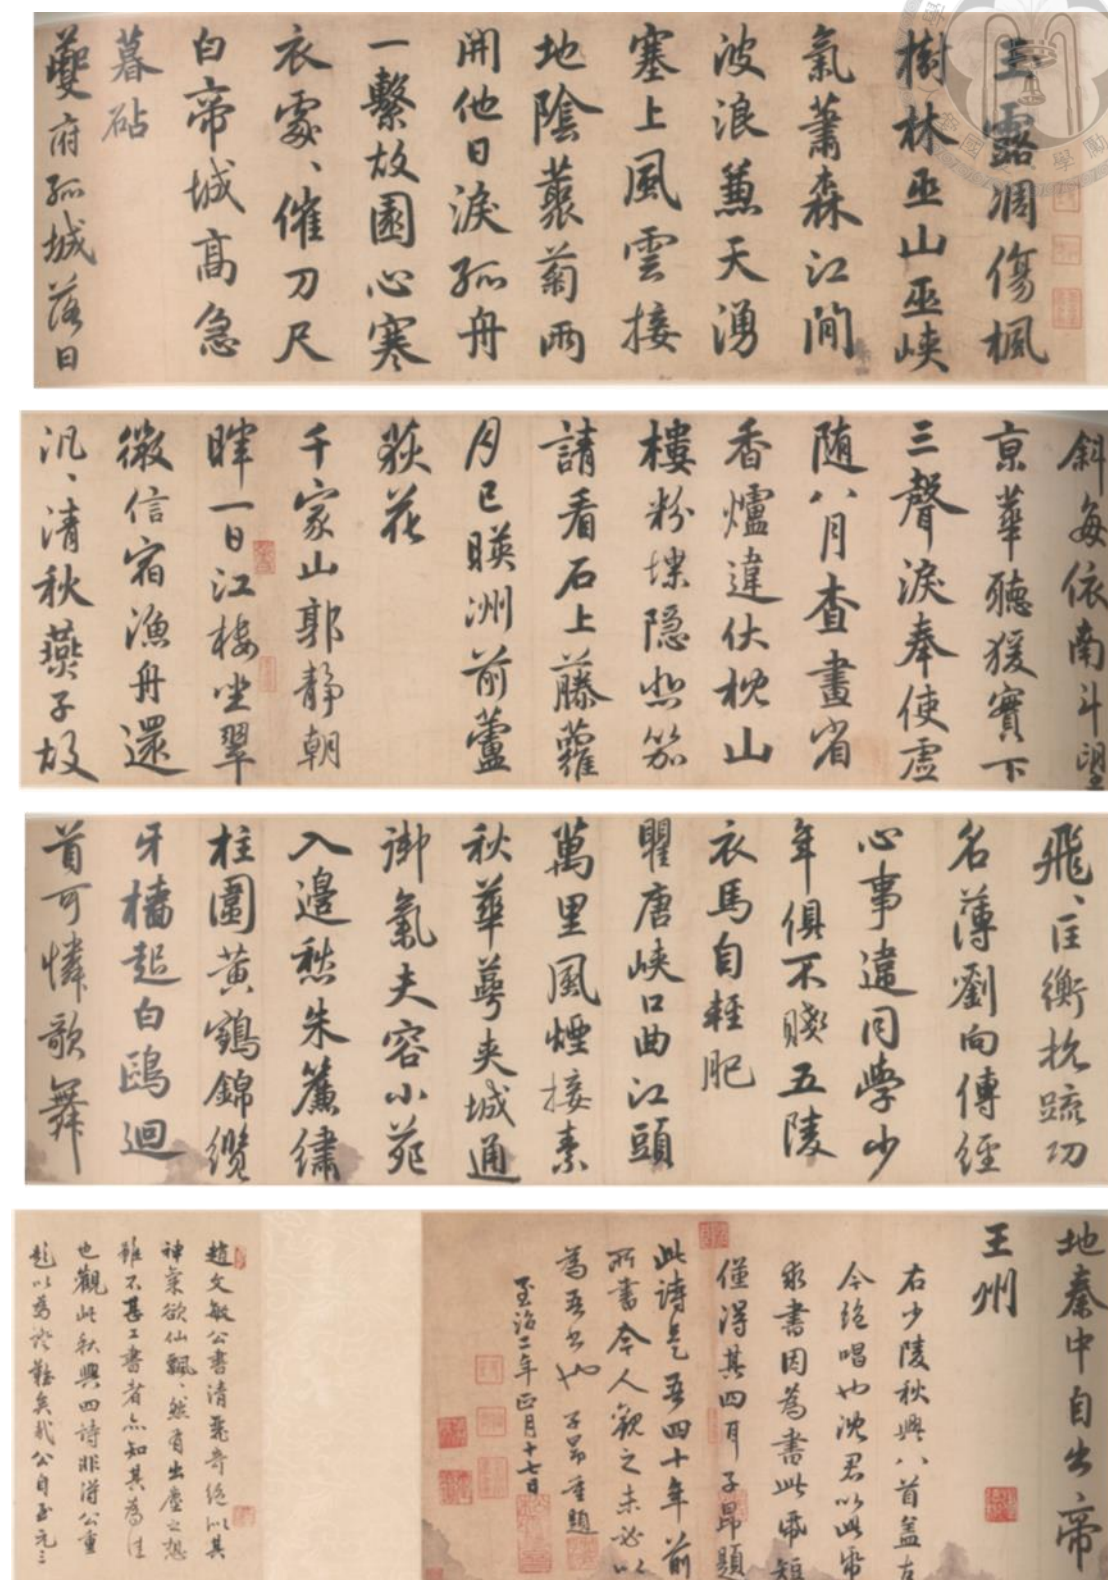 玉露凋傷楓
樹林巫山巫峽
氣蕭森江間
波浪蒹天湧
塞上風雲接
地陰藂菊兩
開他日淚孤舟
一繫故園心寒
衣處、催刀尺
白帝城高急
暮砧
夔府孤城落日
斜每依南斗望
京華聽猨實下
三聲淚奉使虛
隨八月查畫省
香爐違伏枕山
樓粉堞隱悲笳
請看石上藤蘿
月已暎洲前蘆
荻花
千家山郭靜朝
暉一日江樓坐翠
微信宿漁舟還
汎、清秋燕子故
飛、匡衡抗疏功
名薄劉向傳經
心事違同學少
年俱不賤五陵
衣馬自輕肥
瞿唐峽口曲江頭
萬里風煙接素
秋華萼夾城通
御氣夫容小苑
入邊愁朱簾繡
柱圍黃鶴錦纜
牙檣起白鷗迴
首可憐歌舞
地秦中自古帝
王州
右少陵秋興八首盖古
今絕唱也沈君以此帋
求書因為書此帋短
僅得其四耳子昂題
此詩是吾四十年前
所書今人觀之未必以
為吾書也子昂重題
至治二年正月十七日
趙文敏公書清麗奇絕以其
神氣欲仙飄、然有出塵之想
雖不甚工書者亦知其為佳
也觀此秋興四詩非得公重
題以為證難矣哉公自至元三